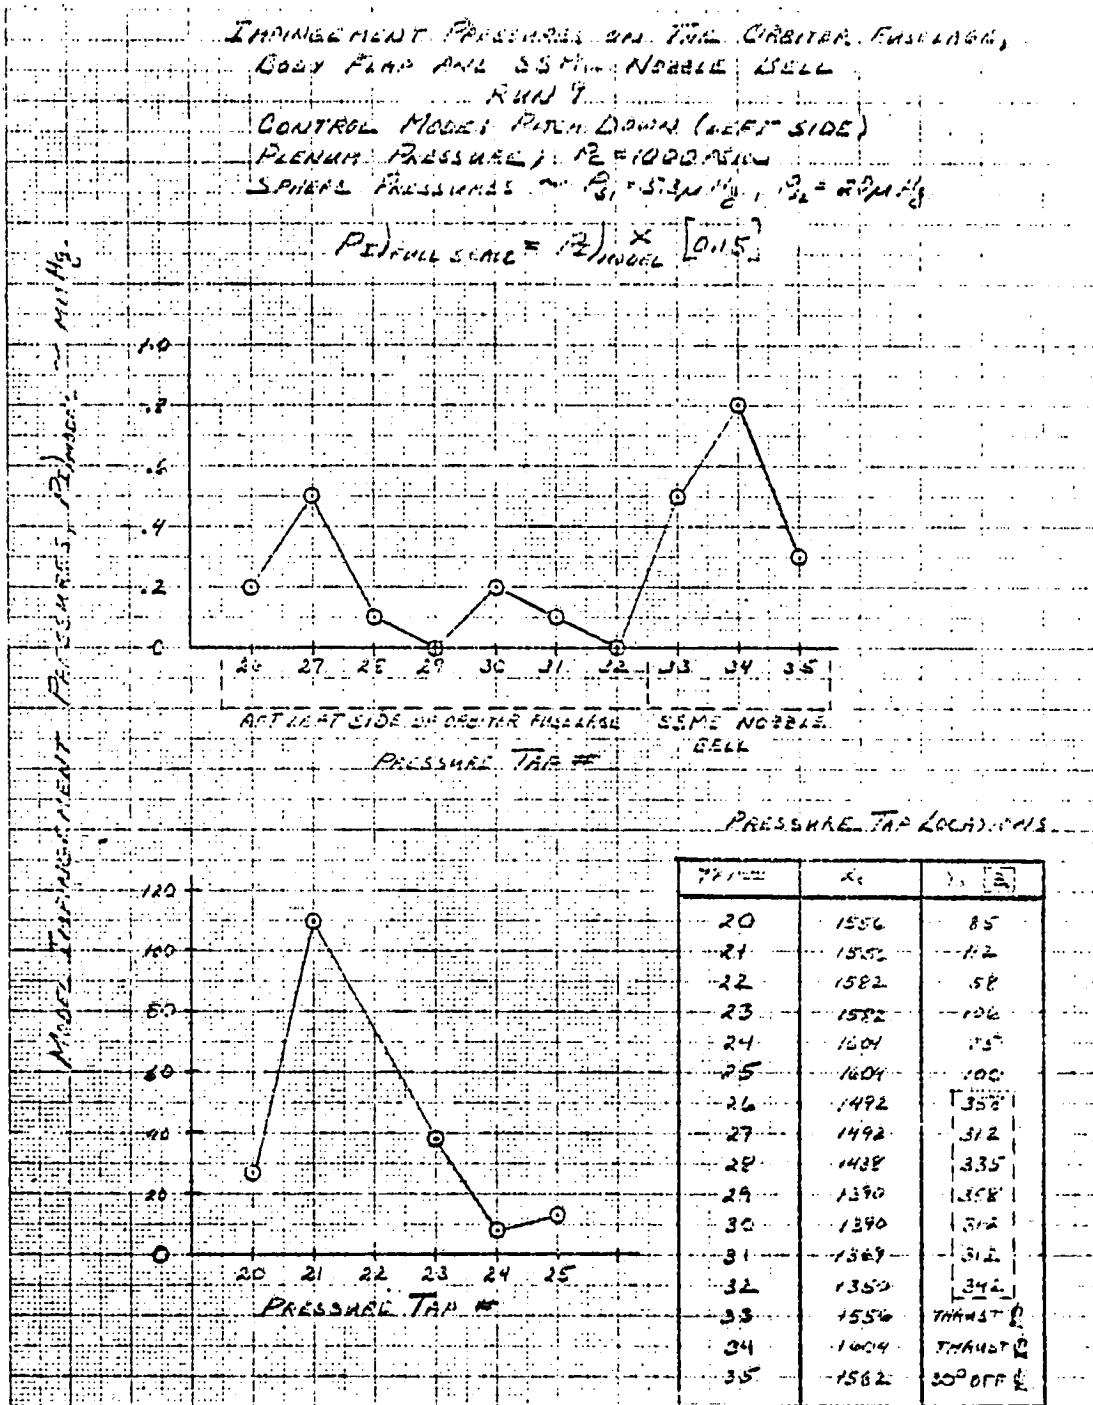 IMPINGEMENT PRESSURES ON THE ORBITER FUSELAGE,
BODY FLAP AND SSME NOZZLE BELL
RUN 9
CONTROL MODE: PITCH DOWN (LEFT SIDE)
PLENUM PRESSURE, = 1000
SPHERE PRESSURES ~
FULL SCALE = MODEL X [0.15]
MODEL IMPINGEMENT PRESSURES, PI)MODEL ~ MM Hg
1.0
.8
.6
.4
.2
0
26 27 28 29 30 31 32 33 34 35
AFT LEFT SIDE OF ORBITER FUSELAGE SSME NOZZLE
BELL
PRESSURE TAP #
PRESSURE TAP LOCATIONS
120
100
80
60
40
20
0
20 21 22 23 24 25
PRESSURE TAP #
20 1556 85
21 112
22 1582 58
23 1582 106
24 1604
25 1604 100
26 1492 358
27 1492 312
28 1438 335
29 1390 358
30 1390 312
31 1369 312
32 1350 342
33 1556 THRUST
34 1604 THRUST
35 1582 30° OFF